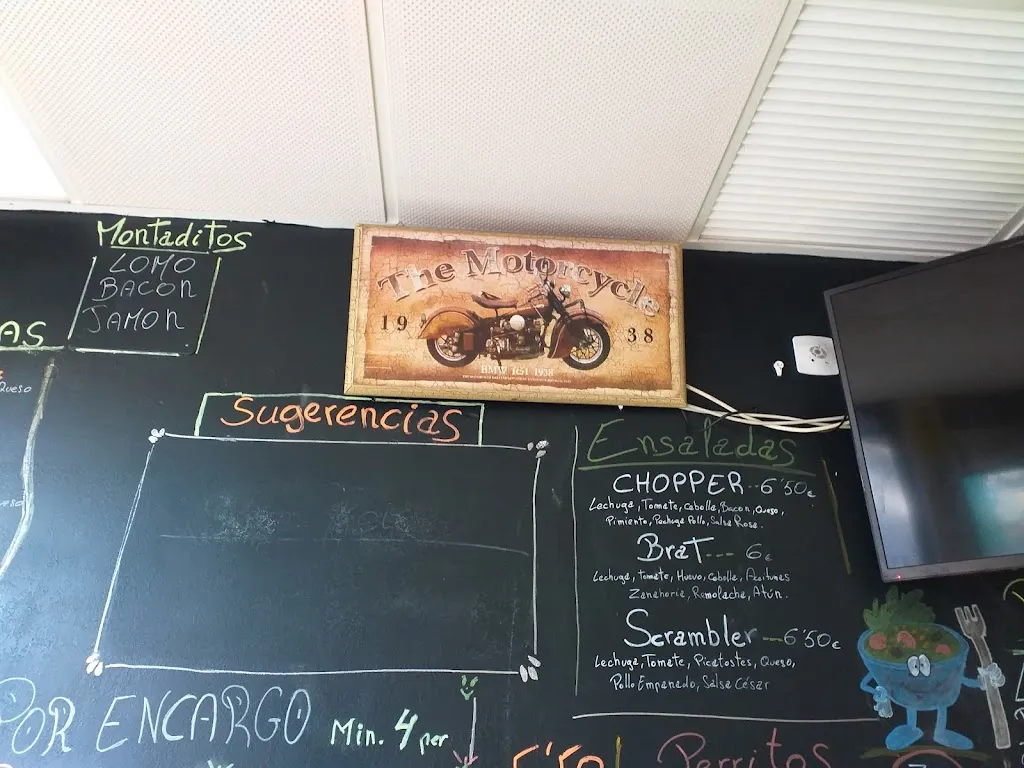 Montaditos
LOMO
BACON
JAMON
AS
Queso
The Motorcycle
19 38
BMW R51 1938
Sugerencias
Ensaladas
CHOPPER--6'50€
Lechuga, Tomate, Cebolla, Bacon, Queso,
Pimiento, Pechuga Pollo, Salsa Rosa.
BraT--- 6€
Lechuga, Tomate, Huevo, Cebolla, Aceitunas
Zanahoria, Remolacha, Atún.
Scrambler--6'50€
Lechuga, Tomate, Picatostes, Queso,
Pollo Empanado, Salsa César
POR ENCARGO Min. 4 per
Perritos